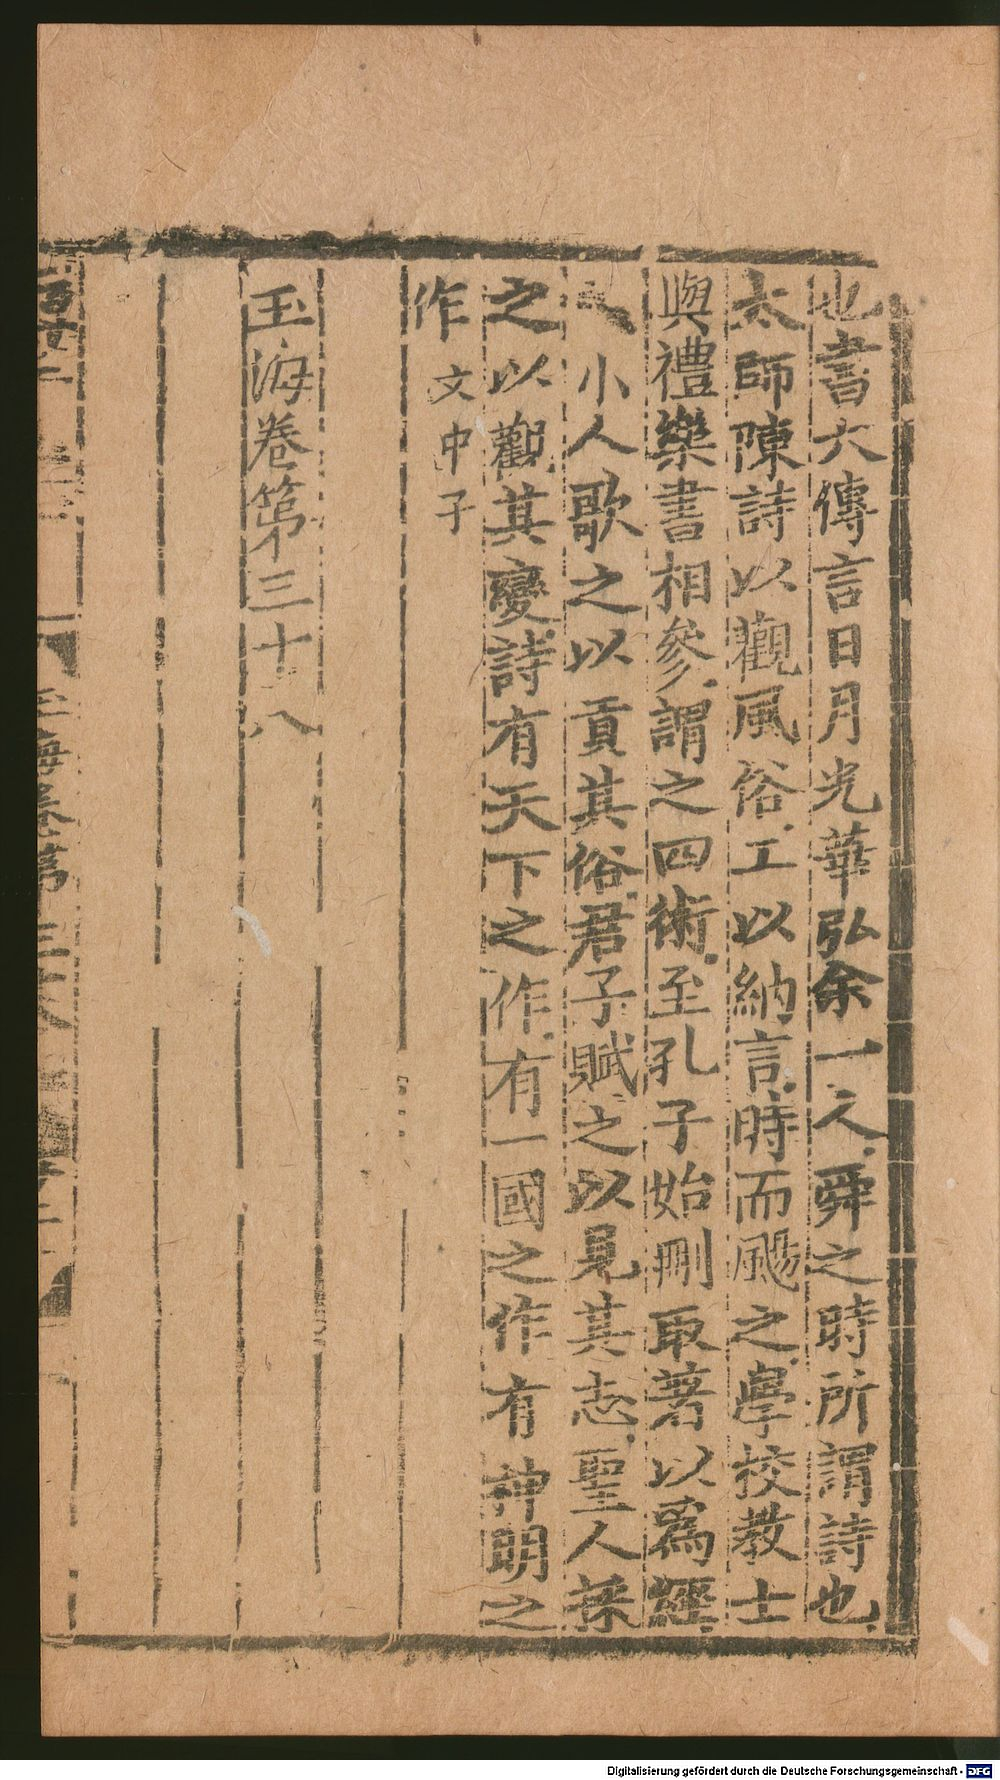 也書大傳言日月光華弘余一人舜之時所謂詩也
太師陳詩以觀風俗工以納言時而颺之學校教士
與禮樂書相參謂之四術至孔子始刪取著以爲經
小人歌之以貢其俗君子賦之以見其志聖人採
之以觀其變詩有天下之作有一國之作有神明之
作 文中子
玉海卷第三十八
Digitalisierung gefördert durch die Deutsche Forschungsgemeinschaft - DFG